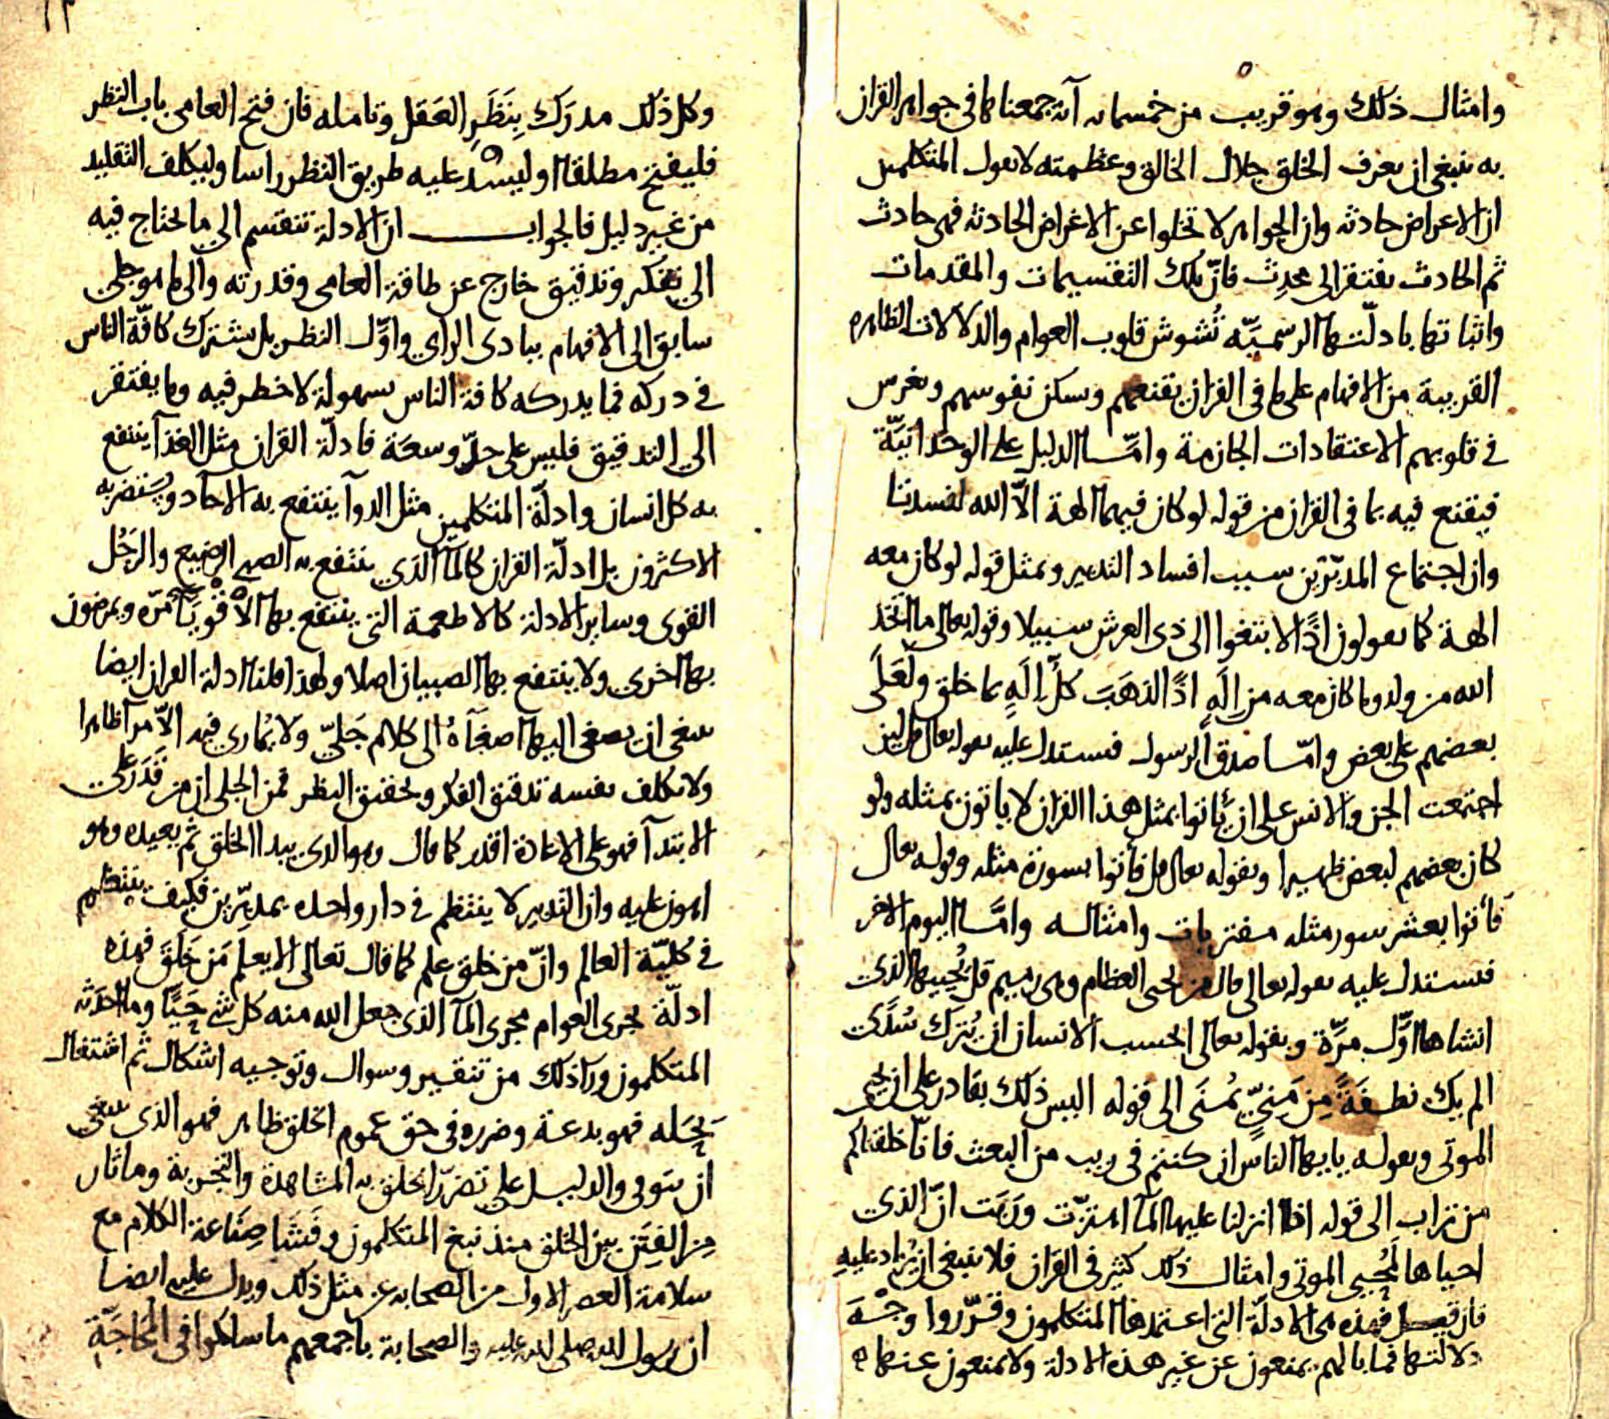 وامثال ذلك وهو قريب من خمسمايه آية جمعناها في جواهر القران
به ينبغي ان يعرف الخلق جلال الخالق وعظمته لا بقول المتكلمين
ان الاعراض حادثه وان الجواهر لا تخلوا عن الاعراض الحادثه فهي حادث
ثم الحادث يفتقر الى محدِث فانّ تلك التقسيمات والمقدمات
واثباتها بادلّتها الرسميّه تُشوش قلوب العوام والدلالات الظاهره
القريبة من الافهام على ما في القران تقنعهم وتسكن نفوسهم وتغرس
في قلوبهم الاعتقادات الجازمة وامّا الدليل على الوحدانيّة
فيقنع فيه بما في القران من قوله لو كان فيهما الهة الاّ الله لفسدتا
وان اجتماع المدبّرين سبب افساد التدبير وبمثل قوله لو كان معه
الهة كما يقولون اذًا لابتغوا الى ذي العرش سبيلا وقوله تعالى ما اتّخذ
الله من ولد وما كان معه من الَهٍ اذًا لذهَبَ كلُّ إلَهٍ بما خلق ولَعَلَى
بعضهم على بعض وامّا صدق الرسول فنستدل عليه بقوله تعالى قل لئن
اجتمعت الجن والانس على ان يأتوا بمثل هذا القران لا ياتون بمثله ولو
كان بعضهم لبعض ظهيرا وبقوله تعالى قل فأتوا بسورة مثله وقوله تعالى
فأتوا بعشر سور مثله مفتريات وامثاله وامَّا اليوم الاخر
فنستدل عليه بقوله تعالى قال من يحيى العظام وهي رميم قل يُحييها الذي
انشاها اوَّل مرَّة وبقوله تعالى ايحسب الانسان ان يُترك سُدًى
الم يك نطفَةً مِن مَنيٍّ يُمنَى الى قوله اليس ذلك بقادر على ان يحيى
الموتى وبقوله يا يها الناس ان كنتم في ريب من البعث فانّا خلقناكم
من تراب الى قوله اذا انزلنا عليها المآ اهتزّت ورَبَت انّ الذي
احياها لَمُحيي الموتى وامثال ذلك كثير في القران فلا ينبغي ان يُزاد عليه
فان قيل فهذه هي الادلّة التي اعتمدها المتكلمون وقرّروا وجْهَ
دلالتها فما بالهم يمنعون عن غير هذه الادلة ولا يمنعون عنها
١٢
وكل ذلك مدرَك بِنَظَرِ العَقَل وتامله فان فتح العامي باب النظر
فليفتح مطلقا او ليُسدّ عليه طريق النظر راسا وليكلف التقليد
من غير دليل فالجواب ان الادلة تنقسم الى ما يحتاج فيه
الى تفكر وتدقيق خارج عن طاقة العامي وقدرته والى ما هو جلي
سابق الى الافهام ببادى الراي واوّل النظر بل يشترك كافّة الناس
في دركه فما يدركه كافة الناس بسهولة لا خطر فيه وما يفتقر
الى التدقيق فليس على حدّ وسعَة فادلّة القران مثل الغذآ ينتفع
به كل انسان وادلّة المتكلمين مثل الدوآ ينتفع به الاحاد ويستضر به
الاكثرون بل ادلّة القران كالمآ الذي ينتفع به الصبي الرضيع والرجُل
القوى وساير الادلة كالاطعمة التي ينتفع بها الاقويآ مرّه ويمرضون
بها اخرى ولا ينتفع بها الصبيان اصلا ولهذا قلنا ادلة القران ايضا
ينبغي ان يصغى اليها اصغآءهُ الى كلام جَليّ ولا يُمارى فيه الاّ مرآ ظاهرا
ولا يكلف نفسه تدقيق الفكر وتحقيق النظر فمن الجلى ان من قَدَر على
الابتدآ فهو على الاعادة اقدر كما قال وهو الذي يبدا الخلق ثم يعيده وهو
اهون عليه وان التدبير لا ينتظم في دار واحده بمدبّرين فكيف ينتظم
في كليّة العالم وانّ من خلق علم كما قال تعالى الا يعلم مَن خَلَقَ فهذه
ادلّة تجرى للعوام مجرى المآ الذي جعل الله منه كل شي حَيًّا وما احدَثه
المتكلمون ورآ ذلك من تنقير وسوال وتوجيه اشكال ثم اشتغال
بحَله فهو بدعة وضرره في حق عموم الخلق ظاهر فهو الذي ينبغي
ان يتوقى والدليل على تضرّر الخلق به المشاهدة والتجربة وما ثار
مِن الفِتَن بين الخلق منذ نبغ المتكلمون وفَشَا صِنَاعة الكلام مع
سلامة العصر الاول من الصحابه عن مثل ذلك ويدل عليه ايضا
ان رسول الله صلى الله عليه والصحابة باجمعهم ما سلكوا في المحَاجَّة